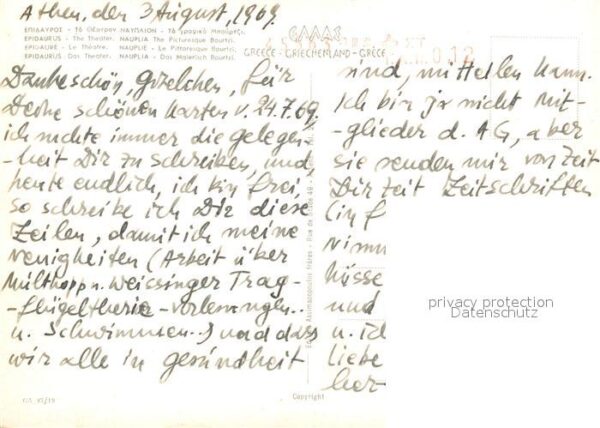 Athen, den 3 August, 1969.
ΕΠΙΔΑΥΡΟΣ - Τό Θέατρον ΝΑΥΠΛΙΟΝ - Τό γραφικό Μπούρτζι
EPIDAURUS - The Theater. NAUPLIA - The Picturesque Bourtzi.
EPIDAURE - Le Théatre. NAUPLIE - Le Pittoresque Bourtzi.
EPIDAURUS - Das Theater. NAUPLIA - Das Malerisch Bourtzi.
ΕΛΛΑΣ
GREECE - GRIECHENLAND - GRÈCE
Dankeschön, Gretelchen, für
Deine schönen Karten v. 24.7.69,
ich nichte immer die gelegen-
-heit Dir zu schreiben, und
heute endlich, ich bin frei,
so schreibe ich Dir diese
Zeilen, damit ich meine
Neuigkeiten (Arbeit über
Multhopp u. Weissinger Trag-
-flügeltheorie-vorlesungen..
u. Schwimmen..) und dass
wir alle in gesundheit
sind, mitteilen kann.
Ich bin ja nicht Mit-
-glieder d. AG, aber
sie senden mir von Zeit
Dir Zeit Zeitschriften
(in f
Nimm
Küsse
und
u. ich
liebe
her-
privacy protection
Datenschutz
Copyright